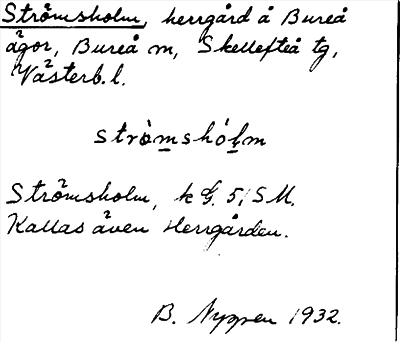 Strömsholm, herrgård å Bureå
ägor, Bureå sn, Skellefteå tg,
Västerb. l.
strömshólm
Strömsholm, k G. 51 SM.
Kallas även Herrgården.
B. Nyppen 1932.